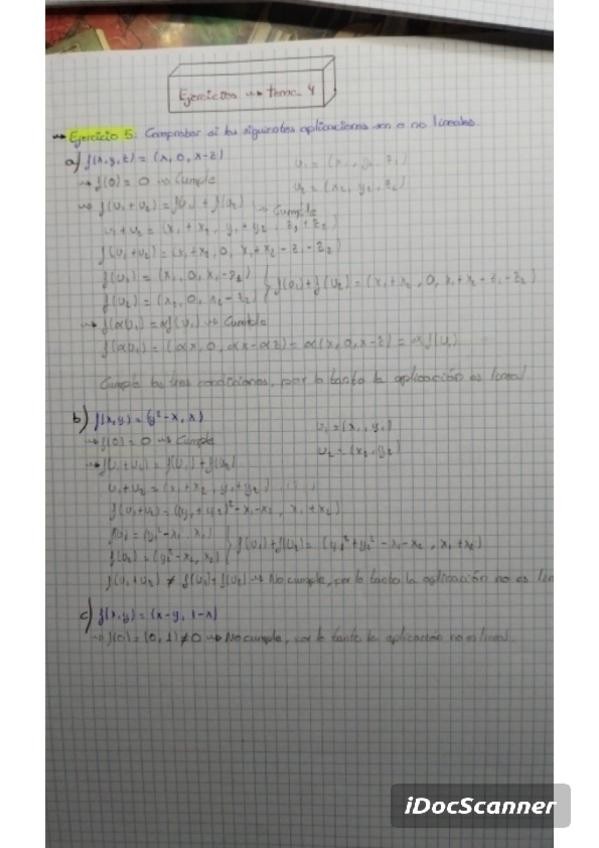 Ejercicios → tema 4
→ Ejercicio 5: Comprobar si las siguientes aplicaciones son o no lineales.
a) f(x,y,z) = (x, 0, x-z)
v₁ = (x₁, y₁, z₁)
→ f(0) = 0 → Cumple
v₂ = (x₂, y₂, z₂)
→ f(v₁+v₂) = f(v₁) + f(v₂) → Cumple
v₁+v₂ = (x₁+x₂, y₁+y₂, z₁+z₂)
f(v₁+v₂) = (x₁+x₂, 0, x₁+x₂-z₁-z₂)
f(v₁) = (x₁, 0, x₁-z₁)
f(v₂) = (x₂, 0, x₂-z₂) } f(v₁)+f(v₂) = (x₁+x₂, 0, x₁+x₂-z₁-z₂)
→ f(αv₁) = αf(v₁) → Cumple
f(αv₁) = (αx, 0, αx-αz) = α(x, 0, x-z) = αf(v₁)
Cumple las tres condiciones, por lo tanto la aplicación es lineal
b) f(x,y) = (y²-x, x)
v₁ = (x₁, y₁)
→ f(0) = 0 → Cumple
v₂ = (x₂, y₂)
→ f(v₁+v₂) = f(v₁) + f(v₂)
v₁+v₂ = (x₁+x₂, y₁+y₂)
f(v₁+v₂) = ((y₁+y₂)²-x₁-x₂, x₁+x₂)
f(v₁) = (y₁²-x₁, x₁)
f(v₂) = (y₂²-x₂, x₂) } f(v₁)+f(v₂) = (y₁²+y₂²-x₁-x₂, x₁+x₂)
f(v₁+v₂) ≠ f(v₁)+f(v₂) → No cumple, por lo tanto la aplicación no es lin
c) f(x,y) = (x-y, 1-x)
→ f(0) = (0, 1) ≠ 0 → No cumple, por lo tanto la aplicación no es lineal.
iDocScanner